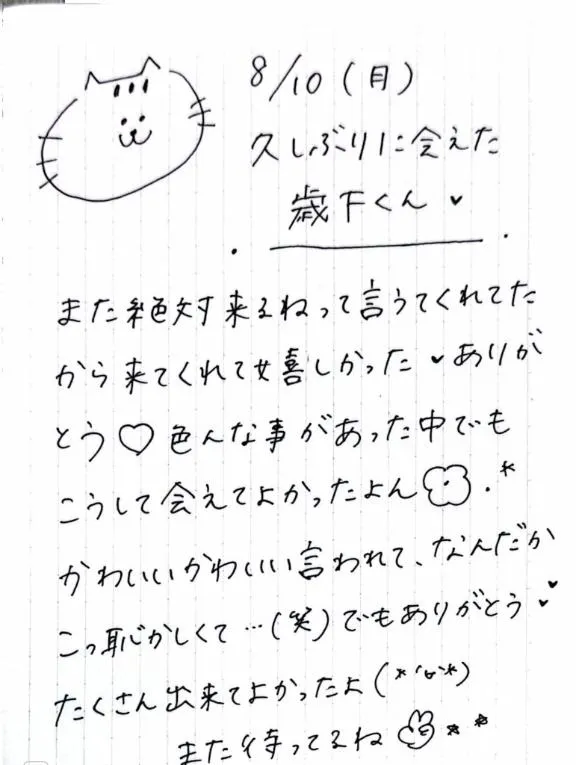 8/10(月)
久しぶりに会えた
歳下くん♥
また絶対来るねって言うてくれてた
から来てくれて嬉しかった♥ありが
とう♡色んな事があった中でも
こうして会えてよかったよん.*
かわいいかわいい言われて、なんだか
こっ恥かしくて…(笑)でもありがとう♥
たくさん出来てよかったよ(*'ω'*)
また待ってるね**